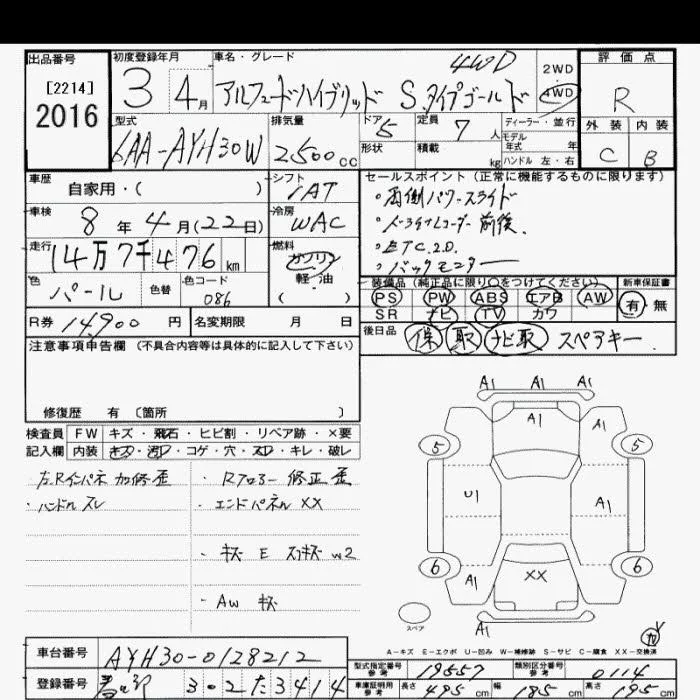 出品番号 初度登録年月 車名・グレード 評価点
[2214]
2016
3 4月 アルファードハイブリッド S.タイプゴールド 4WD
2WD
4WD
R
外装 内装
C B
型式 排気量 ドア 定員 ディーラー・並行
6AA-AYH30W 2500cc 5 7人
モデル年式 年
形状 積載 kg ハンドル 左・右
車歴 シフト セールスポイント(正常に機能するものに限ります)
自家用・( ) IAT
・両側パワースライド
車検 冷房
8年4月(22日) WAC
・前後.
・ETC2.0.
・バックモニター
走行 燃料
14万7千476km ガソリン
軽・油
( )
色 色替 色コード
パール 086
装備品(純正品に限り○をつけてください) 新車保証書
PS PW ABS エアB AW 有・無
SR ナビ TV カワ
R券 14,900円 名変期限 月 日
後日品 保 取 ナビ取 スペアキー.
注意事項申告欄 (不具合内容等は具体的に記入して下さい)
修復歴 有 〔箇所 〕
検査員 FW キズ・飛石・ヒビ割・リペア跡・×要
記入欄 内装 キズ・汚レ・コゲ・穴・スレ・キレ・破レ
左.Rインパネ 加修歪
・ハンドル スレ
・Rフロアー 修正 歪
・エンドパネル XX
・キズ E W2
・AW キズ
A1 A1 A1
A1 A1
5 5
U1 A1
6 6
A1 XX
A1
スペア
A-キズ E-エクボ U-凹み W-補修跡 S-サビ C-腐食 XX-交換済
車台番号 AYH30-0128212
登録番号 302た3414
型式指定番号 参考 19557 類別区分番号 参考 0114
車庫証明用 参考 長さ 495cm 幅 185cm 高さ 195cm